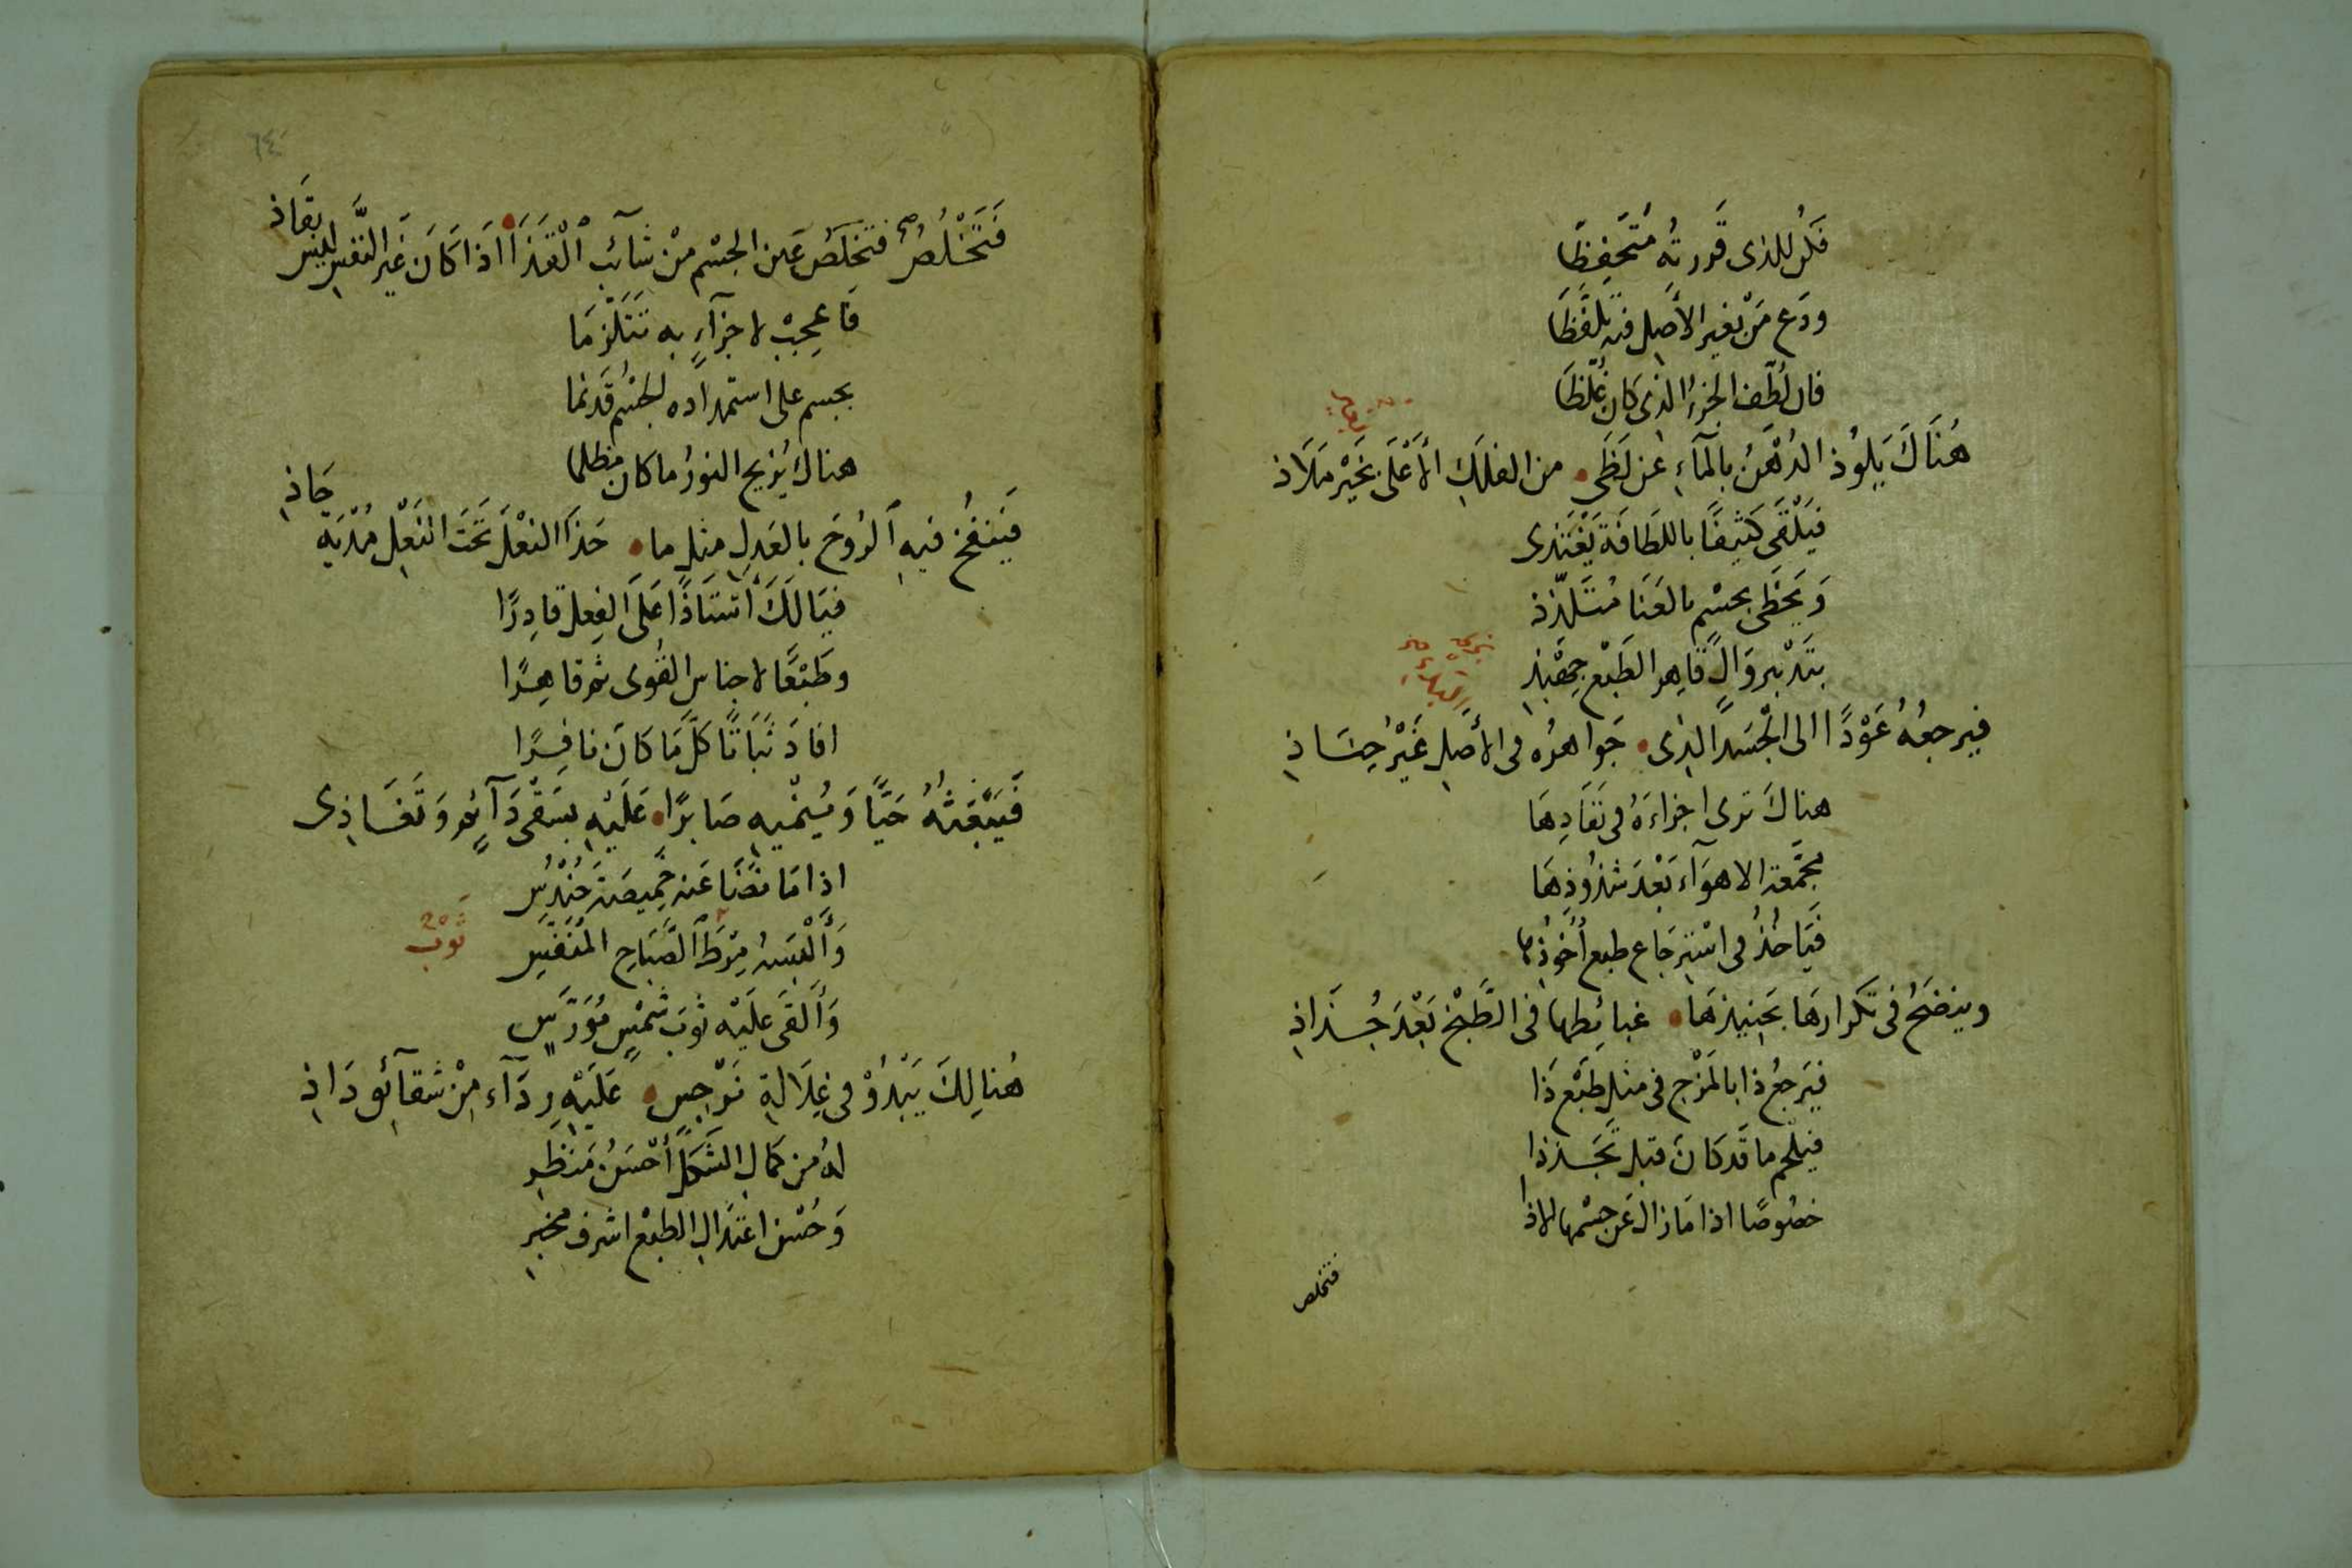 فكن للذى قررته متحفظا
ودع من بغير الأصل فيه تلفظا
فان لطف الجزء الذى كان غلظا
هُنَاكَ يَلُوذ الدُهْنُ بالمآءِ عن لَظَى من الفلك الأعْلَى بخَيْر مَلاذ
فيَلْقَى كَثيفًا باللطَافَة يَغْتَذى
وَيَحظَى بجسْمٍ بالغَنَا مُتَلذّذ
بتَدْبير وَالٍ قَاهر الطَبْع جِهْبَذ
فيرجعُهُ عَوْدًا الى الجَسَد الذى جَواهرُه فى الأصل غَيْرُ جسَاذِ
هناكَ ترى اجزاءَهُ فى نَفَادِهَا
مجَمّعة الاهوَآء بَعْدَ شذُوذِهَا
فيَاخذُ فى اسْترجَاع طبع أخُوذها
وينضَجُ فى تكرارهَا بحَنيذهَا غبائطها فى الطَّبْخ بَعْدَ جُذَاذِ
فيَرجعُ ذا بالمَزْج فى مثل طَبْع ذَا
فيلحم ما قَد كَانَ قبل تَجَذذا
خصُوصًا اذا مَا زال عَن جسْمها الاذا
فتخلص
٦٤
فَتَخْلُصُ فتخلصُ عَين الجسْم مِنْ شآئب الْقَذَا اذَا كَانَ غَير النَّفس ليس بقَاذ
فَاعجبْ لاجزآءٍ به تَتَلزمَا
بجسم على استمداده لجسْم قَد نما
هناك يُزيح النورُ ما كان مظلما
فَيَنفُخُ فيهِ الرُوحَ بالعَدلِ مثل ما حَذَا النعْلَ تحَتَ النَعْلِ مُدْيَة حَاذِ
فيَالَكَ أستَاذًا عَلَى الفِعل قادِرًا
وطَبْعًا لاجناس القُوى ثم قاهِرًا
افادَ ثَبَاتًا كلَّ مَا كانَ نافِرًا
فَيَبْعَثُهُ حَيًّا وَيُنْميهِ صَابرًا عَلَيْهِ بسَقْى دَآئمٍ وَتَغَاذِى
اذا مَا نضَا عَنه خَميصَة حُندُسِ
وَألْبَسَهُ مِرْطَ الصَّبَاحِ المُنَفّسِ
ثَوْب
وَألقَى عَلَيْه ثوبَ شمْسٍ مُوَرّسِ
هُنالِكَ يَبْدُوْ فى غِلَالةِ نَرْجِسٍ عَلَيْهِ ردَآء مِنْ شقآئق دَاذِ
لهُ من كمال الشَكل أحْسَنُ مَنظَرِ
وَحُسْن اعتدَال الطبْع اشرف مخبرِ